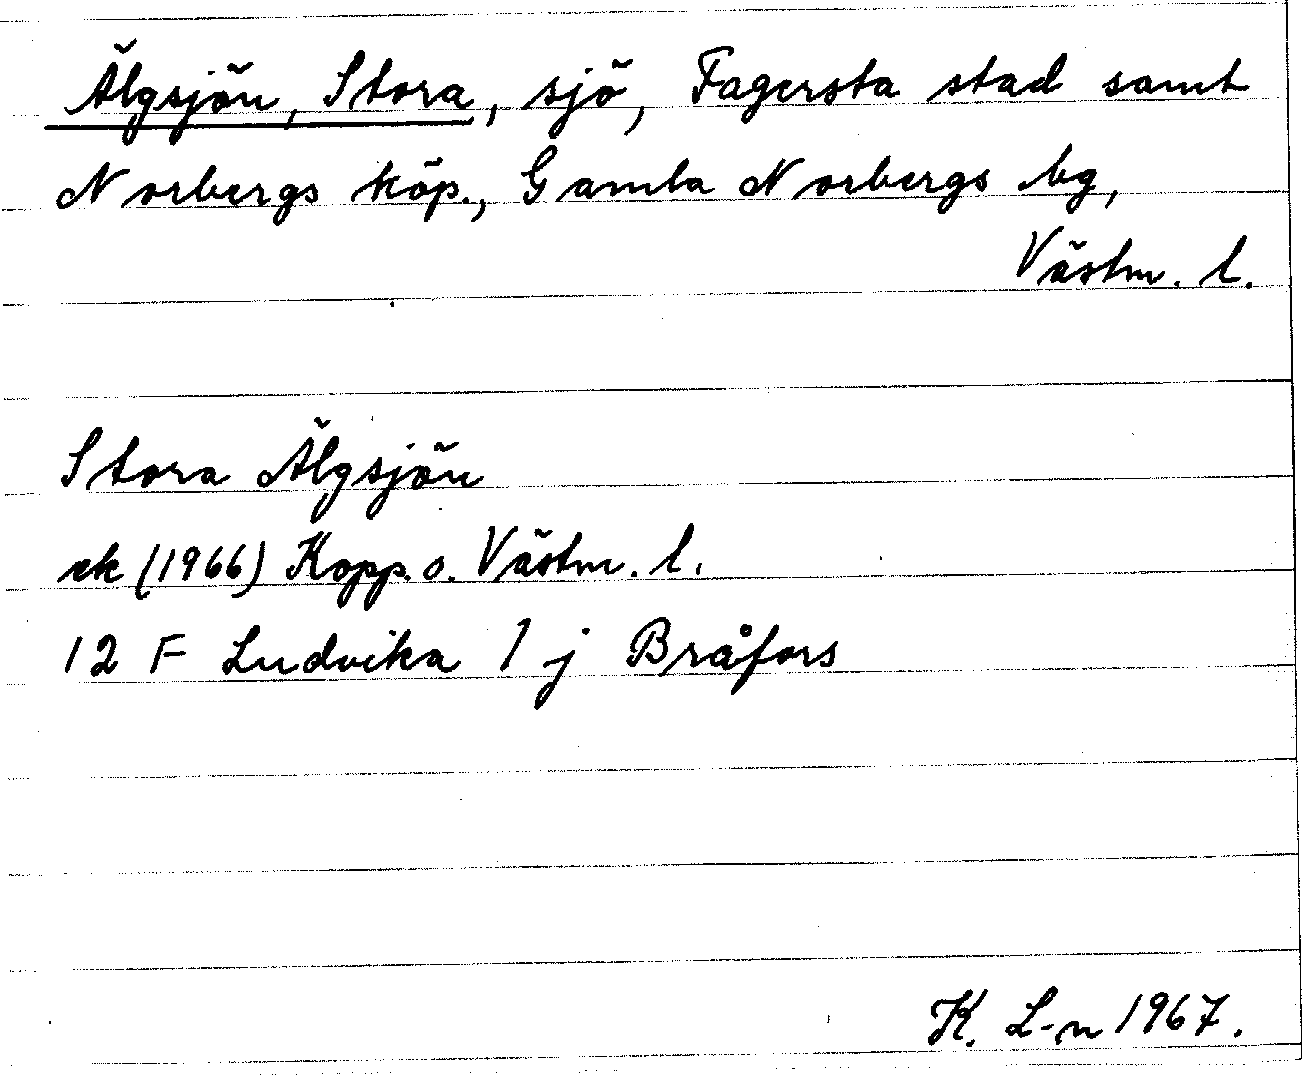 Älgsjön, Stora, sjö, Fagersta stad samt
Norbergs köp., Gamla Norbergs bg,
Västm. l.
Stora Älgsjön
ek (1966) Kopp. o. Västm. l.
12 F Ludvika 1 j Bråfors
K. L-n 1967.